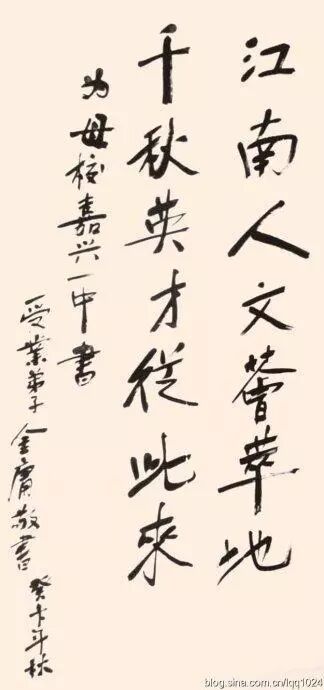 江南人文薈萃地
千秋英才從此來
为母校嘉兴一中書
受業弟子金庸敬書 癸未年秋
blog.sina.com.cn/lqq1024